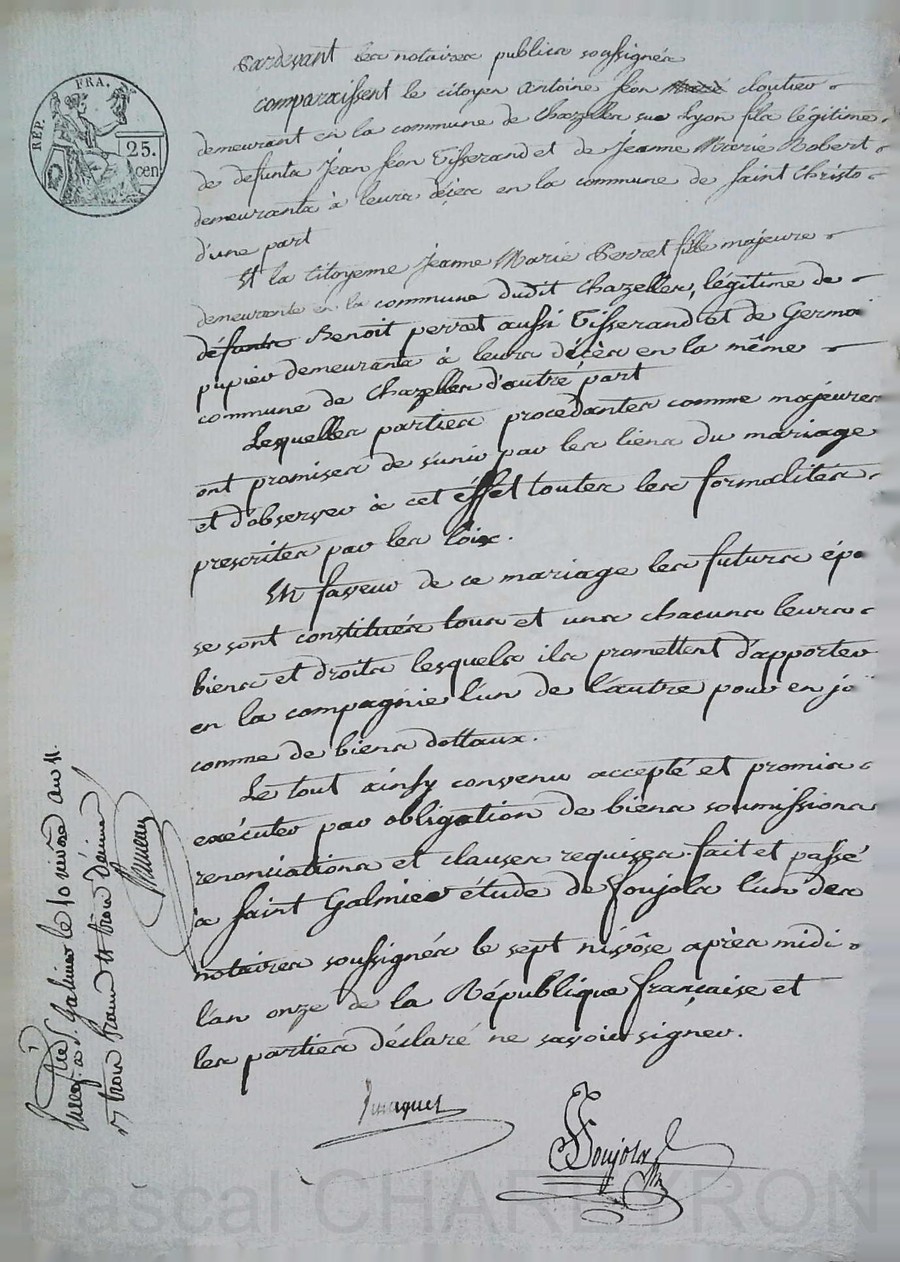 REP. FRA.
25.
cen
Pardevant les notaires publics soussignés
comparaissent le citoyen antoine féon cloutier
demeurant en la commune de Chazelles sur Lyon fils légitime
de defunts Jean féon Tisserand et de Jeanne Marie Robert
demeurants à leurs décès en la commune de Saint Christo
d'une part
Et la citoyenne Jeanne Marie Perret fille majeure
demeurante en la commune dudit Chazelles, légitime de
défunts Benoit perret aussi Tisserand et de Germai
pupier demeurants à leurs décès en la même
commune de Chazelles d'autre part
Lesquelles parties procédantes comme majeures
ont promises de s'unir par les liens du mariage
et d'observer à cet éffet toutes les formalités
prescrites par les loix.
En faveur de ce mariage les futurs épo
se sont constitués tous et uns chacuns leurs
biens et droits lesquels ils promettent d'apporter
en la compagnie l'un de l'autre pour en jo
comme de biens dottaux.
Le tout ainsy convenu accepté et promis
exécuter par obligation de biens soumissions
renonciations et clauses requises fait et passé
a Saint Galmier étude de Foujols l'un des
notaires soussignés le sept nivôse après midi
l'an onze de la République française et
les parties déclaré ne savoir signer.
Foujols
S. Galmier le 10 nivose an 11.
trois francs trois décimes
Pascal CHAREYRON